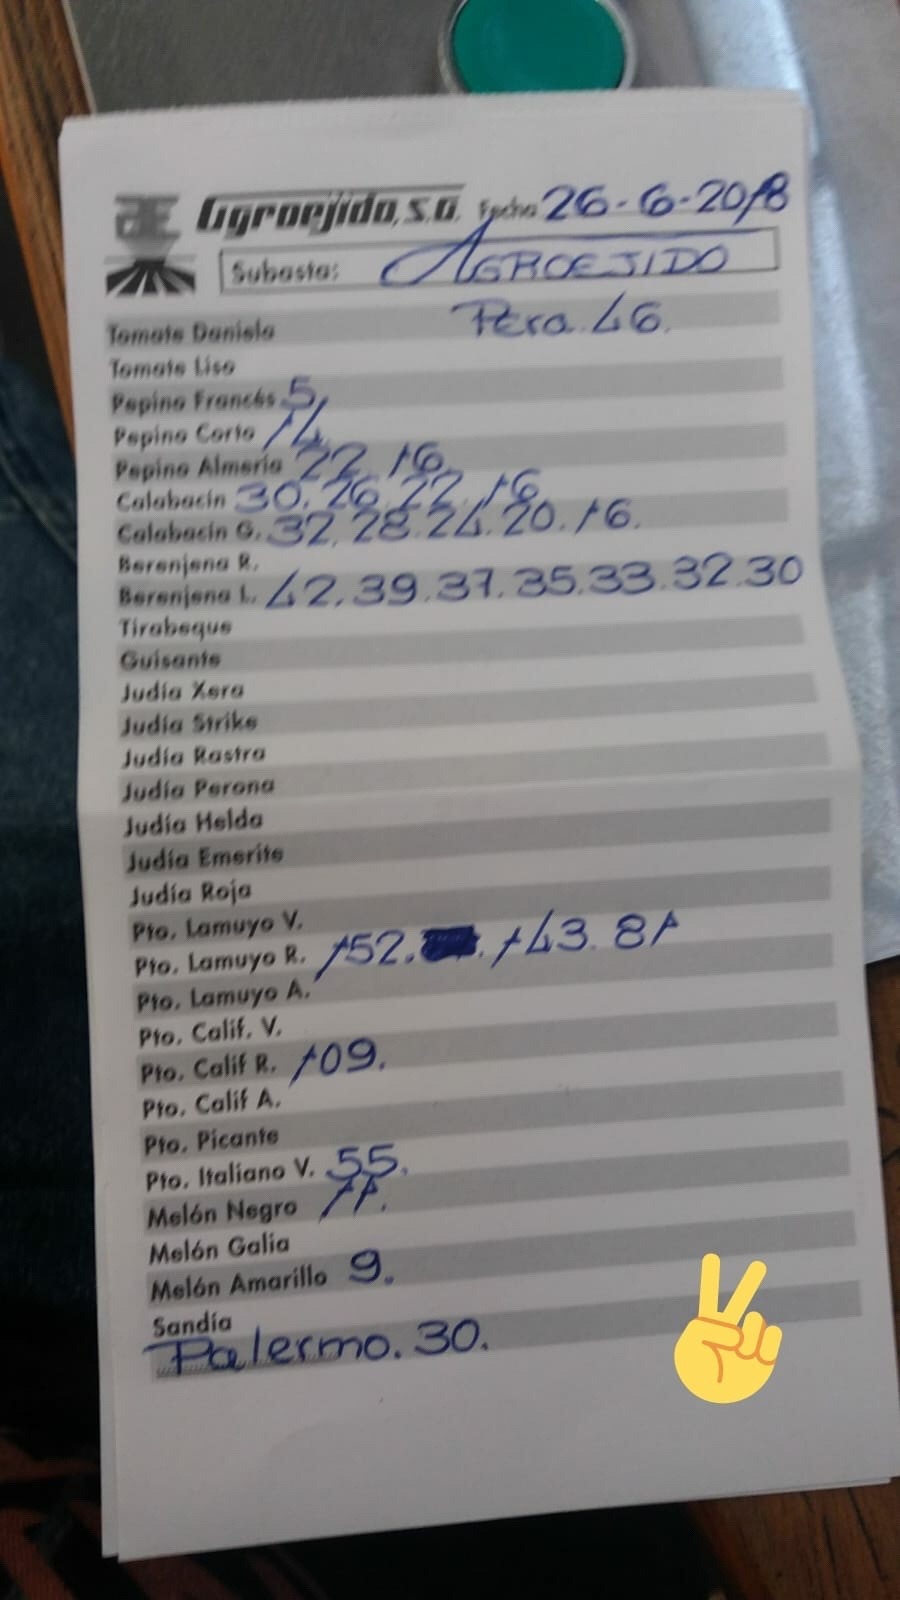 Agroejido, S.A. Fecha 26-6-2018
Subasta: AGROEJIDO
Tomate Daniela Pera. 46.
Tomate Liso
Pepino Francés 5,
Pepino Corto 14
Pepino Almería 22. 16
Calabacín 30. 26. 22. 16
Calabacín G. 32. 28. 24. 20. 16.
Berenjena R.
Berenjena L. 42. 39. 37. 35. 33. 32. 30
Tirabeque
Guisante
Judía Xera
Judía Strike
Judía Rastra
Judía Perona
Judía Helda
Judía Emerite
Judía Roja
Pto. Lamuyo V.
Pto. Lamuyo R. 152. 143. 81
Pto. Lamuyo A.
Pto. Calif. V.
Pto. Calif R. 109.
Pto. Calif A.
Pto. Picante
Pto. Italiano V. 55.
Melón Negro 11.
Melón Galia
Melón Amarillo 9.
Sandía
Palermo. 30.